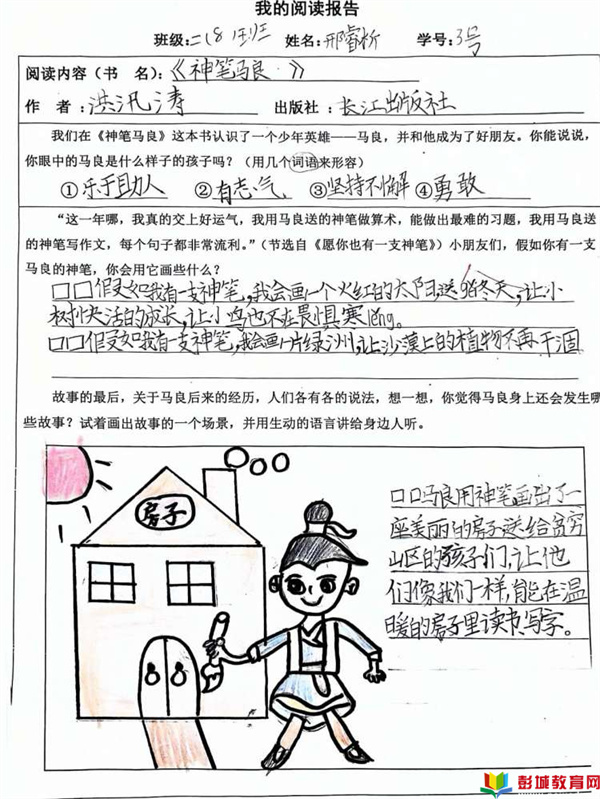 我的阅读报告
班级:二(8)班 姓名:邢睿析 学号:3号
阅读内容(书 名):《神笔马良》
作 者:洪汛涛 出版社:长江出版社
我们在《神笔马良》这本书认识了一个少年英雄——马良,并和他成为了好朋友。你能说说,
你眼中的马良是什么样子的孩子吗?(用几个词语来形容)
①乐于助人 ②有志气 ③坚持不懈 ④勇敢
“这一年哪,我真的交上好运气,我用马良送的神笔做算术,能做出最难的习题,我用马良送
的神笔写作文,每个句子都非常流利。”(节选自《愿你也有一支神笔》)小朋友们,假如你有一支
马良的神笔,你会用它画些什么?
口口假如我有一支神笔,我会画一个火红的太阳,送给冬天,让小
树快活的成长,让小鸟也不在畏惧寒lěng。
口口假如我有一支神笔,我会画一片绿洲,让沙漠上的植物不再干涸
故事的最后,关于马良后来的经历,人们各有各的说法,想一想,你觉得马良身上还会发生哪
些故事?试着画出故事的一个场景,并用生动的语言讲给身边人听。
房子
口口马良用神笔画出了一
座美丽的房子送给贫穷
山区的孩子们,让他
们像我们一样,能在温
暖的房子里读书、写字。
彭城教育网